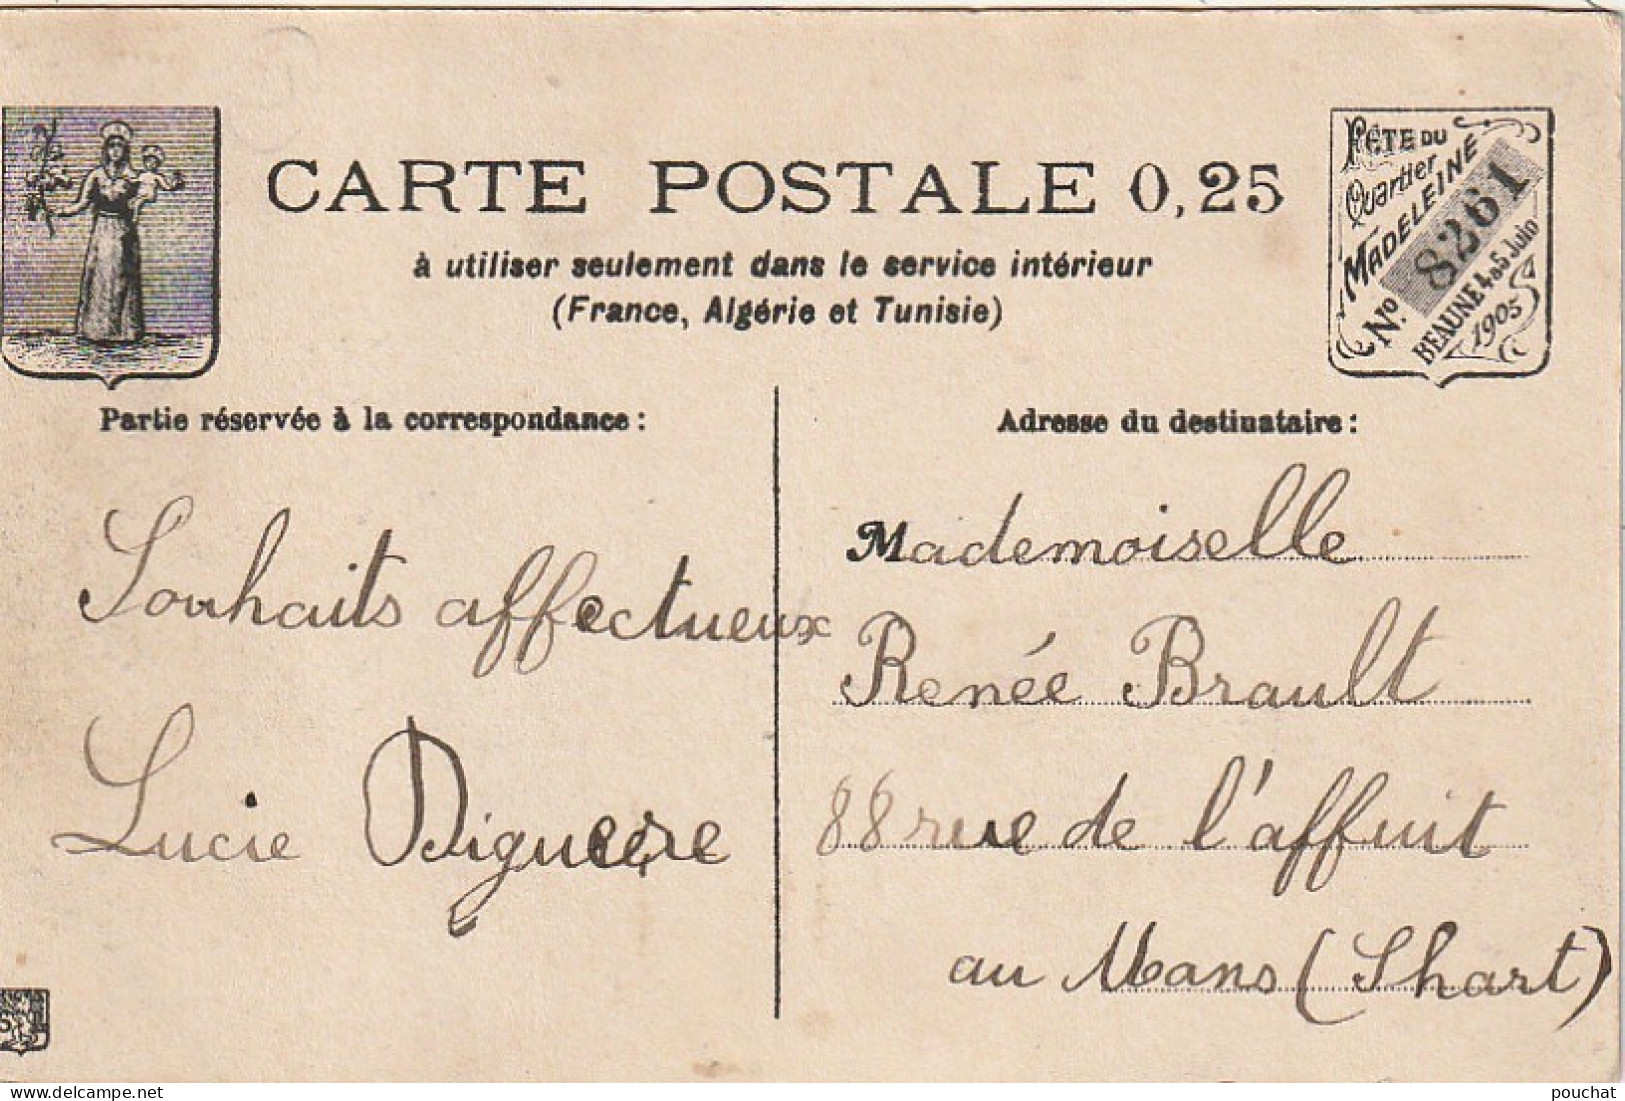 CARTE POSTALE 0,25
à utiliser seulement dans le service intérieur
(France, Algérie et Tunisie)
FÊTE DU
Quartier
MADELEINE
No. 8261
BEAUNE 4 & 5 Juin
1905
Partie réservée à la correspondance :
Souhaits affectueux
Lucie
Adresse du destinataire :
Mademoiselle
Renée Brault
88 rue de l'affuit
au Mans (Shart)
pouchat